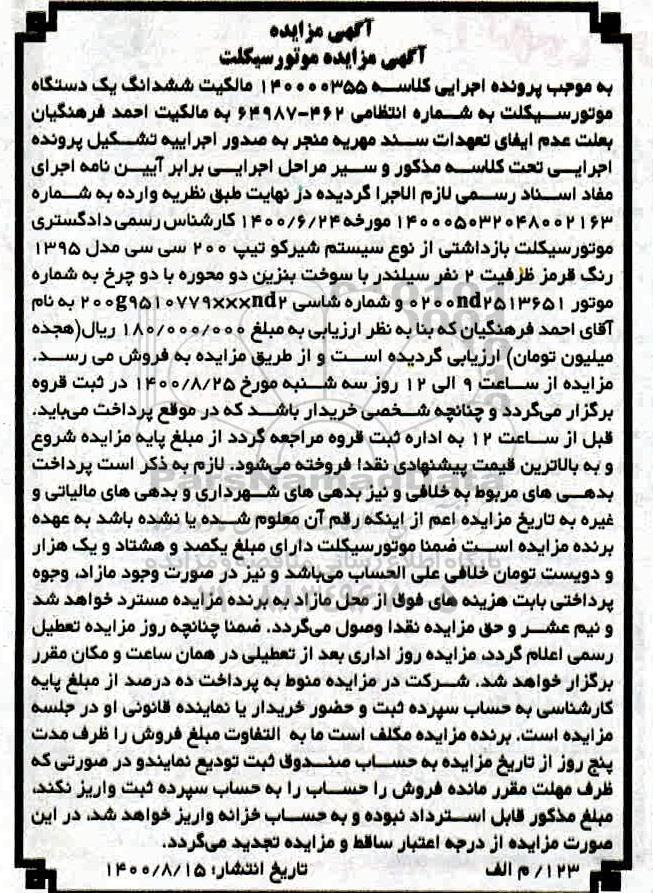 آگهی مزایده
آگهی مزایده موتورسیکلت
به موجب پرونده اجرایی کلاسه ۱۴۰۰۰۰۳۵۵ مالکیت ششدانگ یک دستگاه
موتورسیکلت به شماره انتظامی ۴۶۲-۶۴۹۸۷ به مالکیت احمد فرهنگیان
بعلت عدم ایفای تعهدات سند مهریه منجر به صدور اجراییه تشکیل پرونده
اجرایی تحت کلاسه مذکور و سیر مراحل اجرایی برابر آیین نامه اجرای
مفاد اسناد رسمی لازم الاجرا گردیده در نهایت طبق نظریه وارده به شماره
۱۴۰۰۰۵۰۳۲۰۴۸۰۰۲۱۶۳ مورخه ۱۴۰۰/۶/۲۴ کارشناس رسمی دادگستری
موتورسیکلت بازداشتی از نوع سیستم شیرکو تیپ ۲۰۰ سی سی مدل ۱۳۹۵
رنگ قرمز ظرفیت ۲ نفر سیلندر با سوخت بنزین دو محوره با دو چرخ به شماره
موتور ۰۲۰۰nd۲۵۱۳۶۵۱ و شماره شاسی ۲۰۰g۹۵۱۰۷۷۹xxxnd۲ به نام
آقای احمد فرهنگیان که بنا به نظر ارزیابی به مبلغ ۱۸۰/۰۰۰/۰۰۰ ریال(هجده
میلیون تومان) ارزیابی گردیده است و از طریق مزایده به فروش می رسد.
مزایده از ساعت ۹ الی ۱۲ روز سه شنبه مورخ ۱۴۰۰/۸/۲۵ در ثبت قروه
برگزار می‌گردد و چنانچه شخصی خریدار باشد که در موقع پرداخت می‌باید.
قبل از ساعت ۱۲ به اداره ثبت قروه مراجعه گردد از مبلغ پایه مزایده شروع
و به بالاترین قیمت پیشنهادی نقدا فروخته می‌شود. لازم به ذکر است پرداخت
بدهی های مربوط به خلافی و نیز بدهی های شهرداری و بدهی های مالیاتی و
غیره به تاریخ مزایده اعم از اینکه رقم آن معلوم شده یا نشده باشد به عهده
برنده مزایده است ضمنا موتورسیکلت دارای مبلغ یکصد و هشتاد و یک هزار
و دویست تومان خلافی علی الحساب می‌باشد و نیز در صورت وجود مازاد، وجوه
پرداختی بابت هزینه های فوق از محل مازاد به برنده مزایده مسترد خواهد شد
و نیم عشر و حق مزایده نقدا وصول می‌گردد. ضمنا چنانچه روز مزایده تعطیل
رسمی اعلام گردد، مزایده روز اداری بعد از تعطیلی در همان ساعت و مکان مقرر
برگزار خواهد شد. شرکت در مزایده منوط به پرداخت ده درصد از مبلغ پایه
کارشناسی به حساب سپرده ثبت و حضور خریدار یا نماینده قانونی او در جلسه
مزایده است. برنده مزایده مکلف است ما به التفاوت مبلغ فروش را ظرف مدت
پنج روز از تاریخ مزایده به حساب صندوق ثبت تودیع نمایندو در صورتی که
ظرف مهلت مقرر مانده فروش را حساب را به حساب سپرده ثبت واریز نکند،
مبلغ مذکور قابل استرداد نبوده و به حساب خزانه واریز خواهد شد، در این
صورت مزایده از درجه اعتبار ساقط و مزایده تجدید می‌گردد.
۱۲۳/ م الف تاریخ انتشار: ۱۴۰۰/۸/۱۵